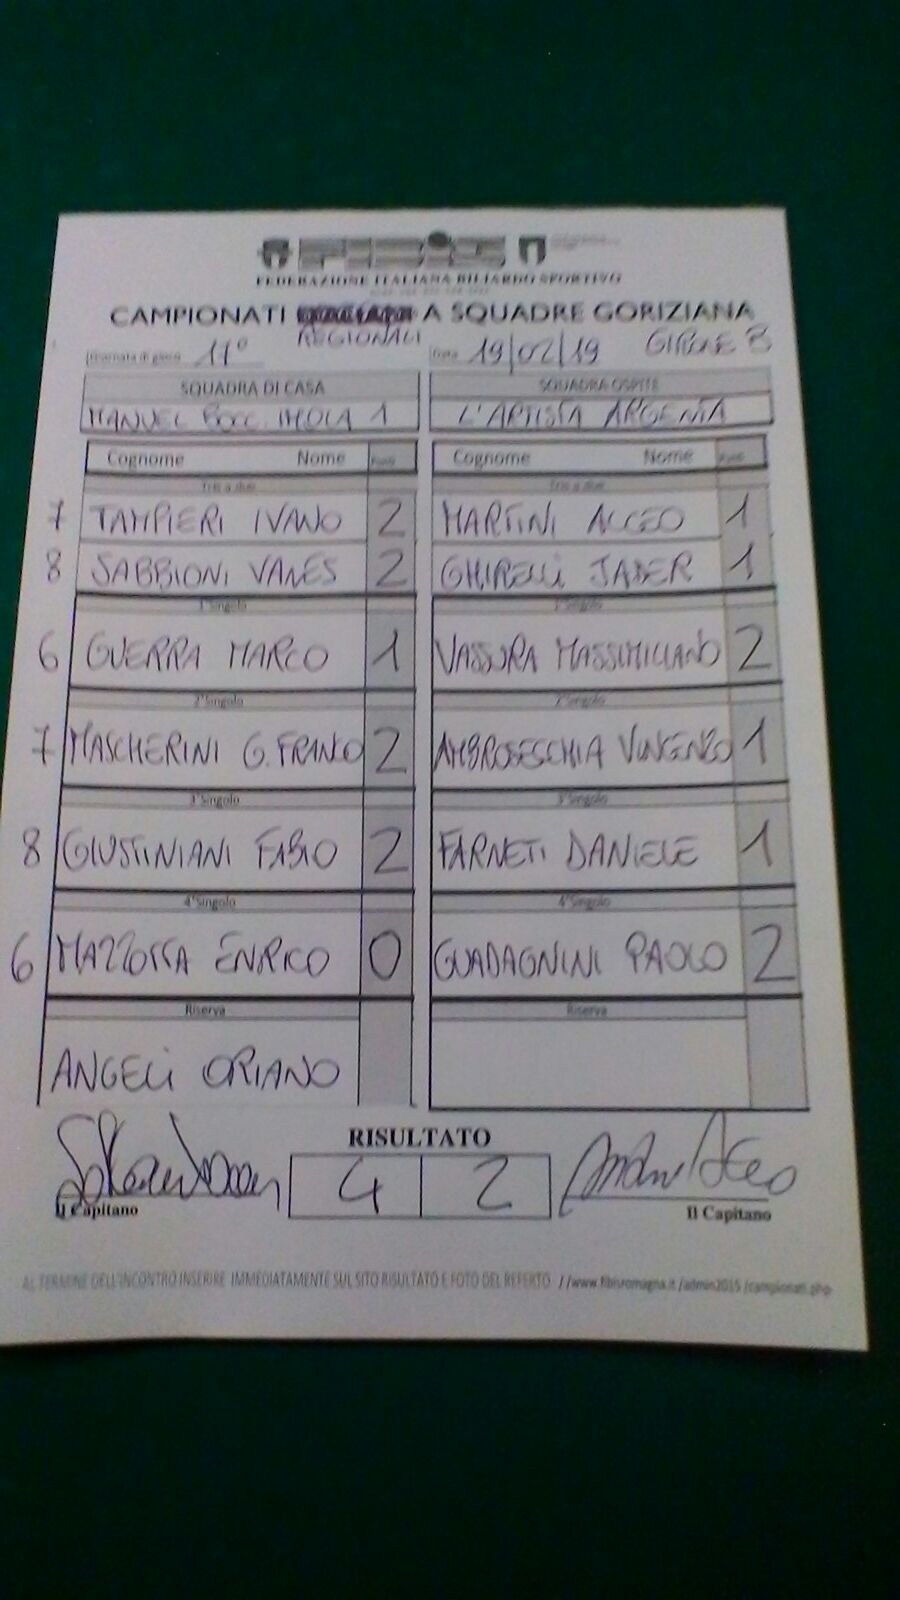 FEDERAZIONE ITALIANA BILIARDO SPORTIVO
CAMPIONATI A SQUADRE GORIZIANA
REGIONALI
Giornata di gioco 11° Data 19/02/19 GIRONE B
SQUADRA DI CASA SQUADRA OSPITE
MANUEL BOCC. IMOLA 1 L'ARTISTA ARGENTA
Cognome Nome Punti Cognome Nome Punti
Tris a due Tris a due
7 TAMPIERI IVANO 2 MARTINI ALCEO 1
8 SABBIONI VANES 2 GHIRELLI JADER 1
1°Singolo 1°Singolo
6 GUERRA MARCO 1 VASSURA MASSIMILIANO 2
2°Singolo 2°Singolo
7 MASCHERINI G. FRANCO 2 AMBROSECCHIA VINCENZO 1
3°Singolo 3°Singolo
8 GIUSTINIANI FABIO 2 FARNETI DANIELE 1
4°Singolo 4°Singolo
6 MAZZOTTA ENRICO 0 GUADAGNINI PAOLO 2
Riserva Riserva
ANGELI ORIANO
RISULTATO
4 2
Il Capitano Il Capitano
AL TERMINE DELL'INCONTRO INSERIRE IMMEDIATAMENTE SUL SITO RISULTATO E FOTO DEL REFERTO //www.fibisromagna.it/admin2015/campionati.php